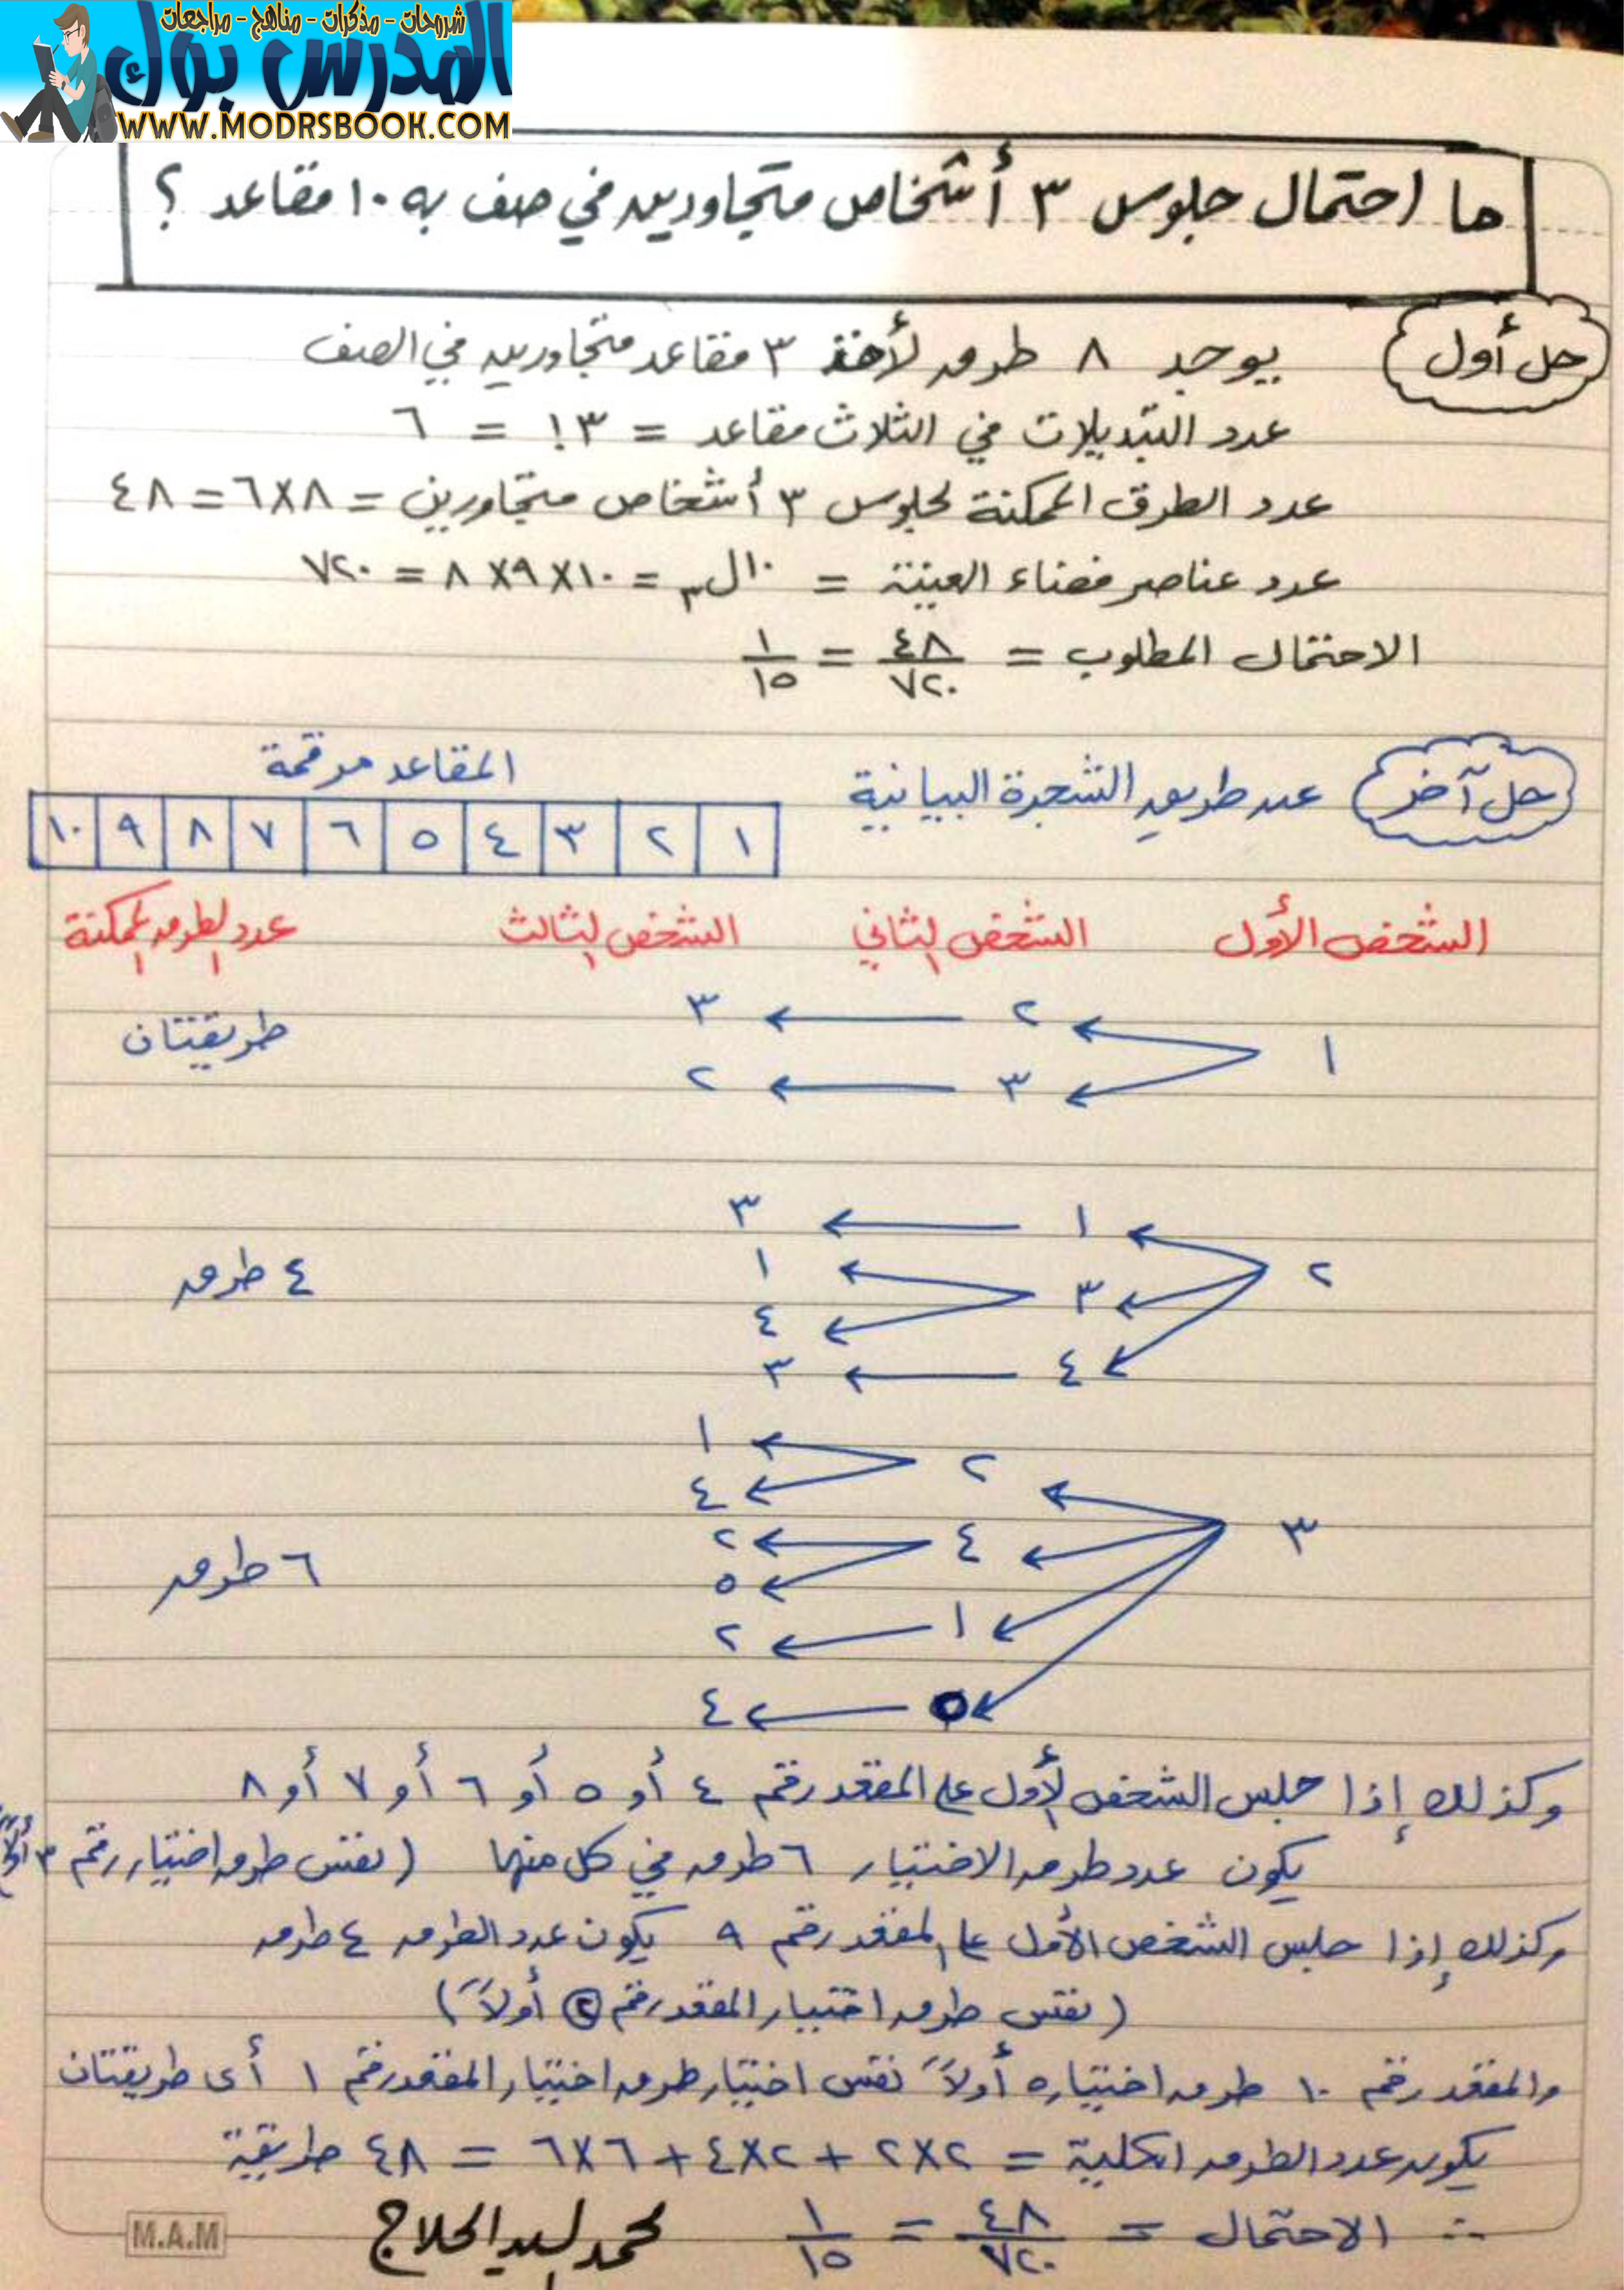 شروحات - مذكرات - مناهج - مراجعات
المدرس بوك
WWW.MODRSBOOK.COM
ما احتمال جلوس ٣ أشخاص متجاورين في صف به ١٠ مقاعد ؟
حل أول
يوجد ٨ طرق لأخذ ٣ مقاعد متجاورين في الصف
عدد التبديلات في الثلاث مقاعد = ٣! = ٦
عدد الطرق الممكنة لجلوس ٣ أشخاص متجاورين = ٨×٦ = ٤٨
عدد عناصر فضاء العينة = ١٠ل٣ = ١٠×٩×٨ = ٧٢٠
الاحتمال المطلوب = ٤٨/٧٢٠ = ١/١٥
حل آخر
عن طريق الشجرة البيانية
المقاعد مرقمة
١ ٢ ٣ ٤ ٥ ٦ ٧ ٨ ٩ ١٠
الشخص الأول الشخص الثاني الشخص الثالث عدد الطرق الممكنة
١ ٢ ← ٣ طريقتان
٣ ← ٢
٢ ١ ← ٣ ٤ طرق
٣ ← ١
٤
٤ ← ٣
٣ ٢ ← ١ ٦ طرق
٤
٤ ← ٢
٥
١ ← ٢
٥ ← ٤
وكذلك إذا جلس الشخص الأول على المقعد رقم ٤ أو ٥ أو ٦ أو ٧ أو ٨
يكون عدد طرق الاختيار ٦ طرق في كل منها (نفس طرق اختيار رقم ٣ أولاً)
وكذلك إذا جلس الشخص الأول على المقعد رقم ٩ يكون عدد الطرق ٤ طرق
(نفس طرق اختيار المقعد رقم ٢ أولاً)
والمقعد رقم ١٠ طرق اختياره أولاً نفس اختيار طرق اختيار المقعد رقم ١ أى طريقتان
يكون عدد الطرق الكلية = ٢×٢ + ٢×٤ + ٦×٦ = ٤٨ طريقة
∴ الاحتمال = ٤٨/٧٢٠ = ١/١٥
محمد السيد الحلاج
M.A.M